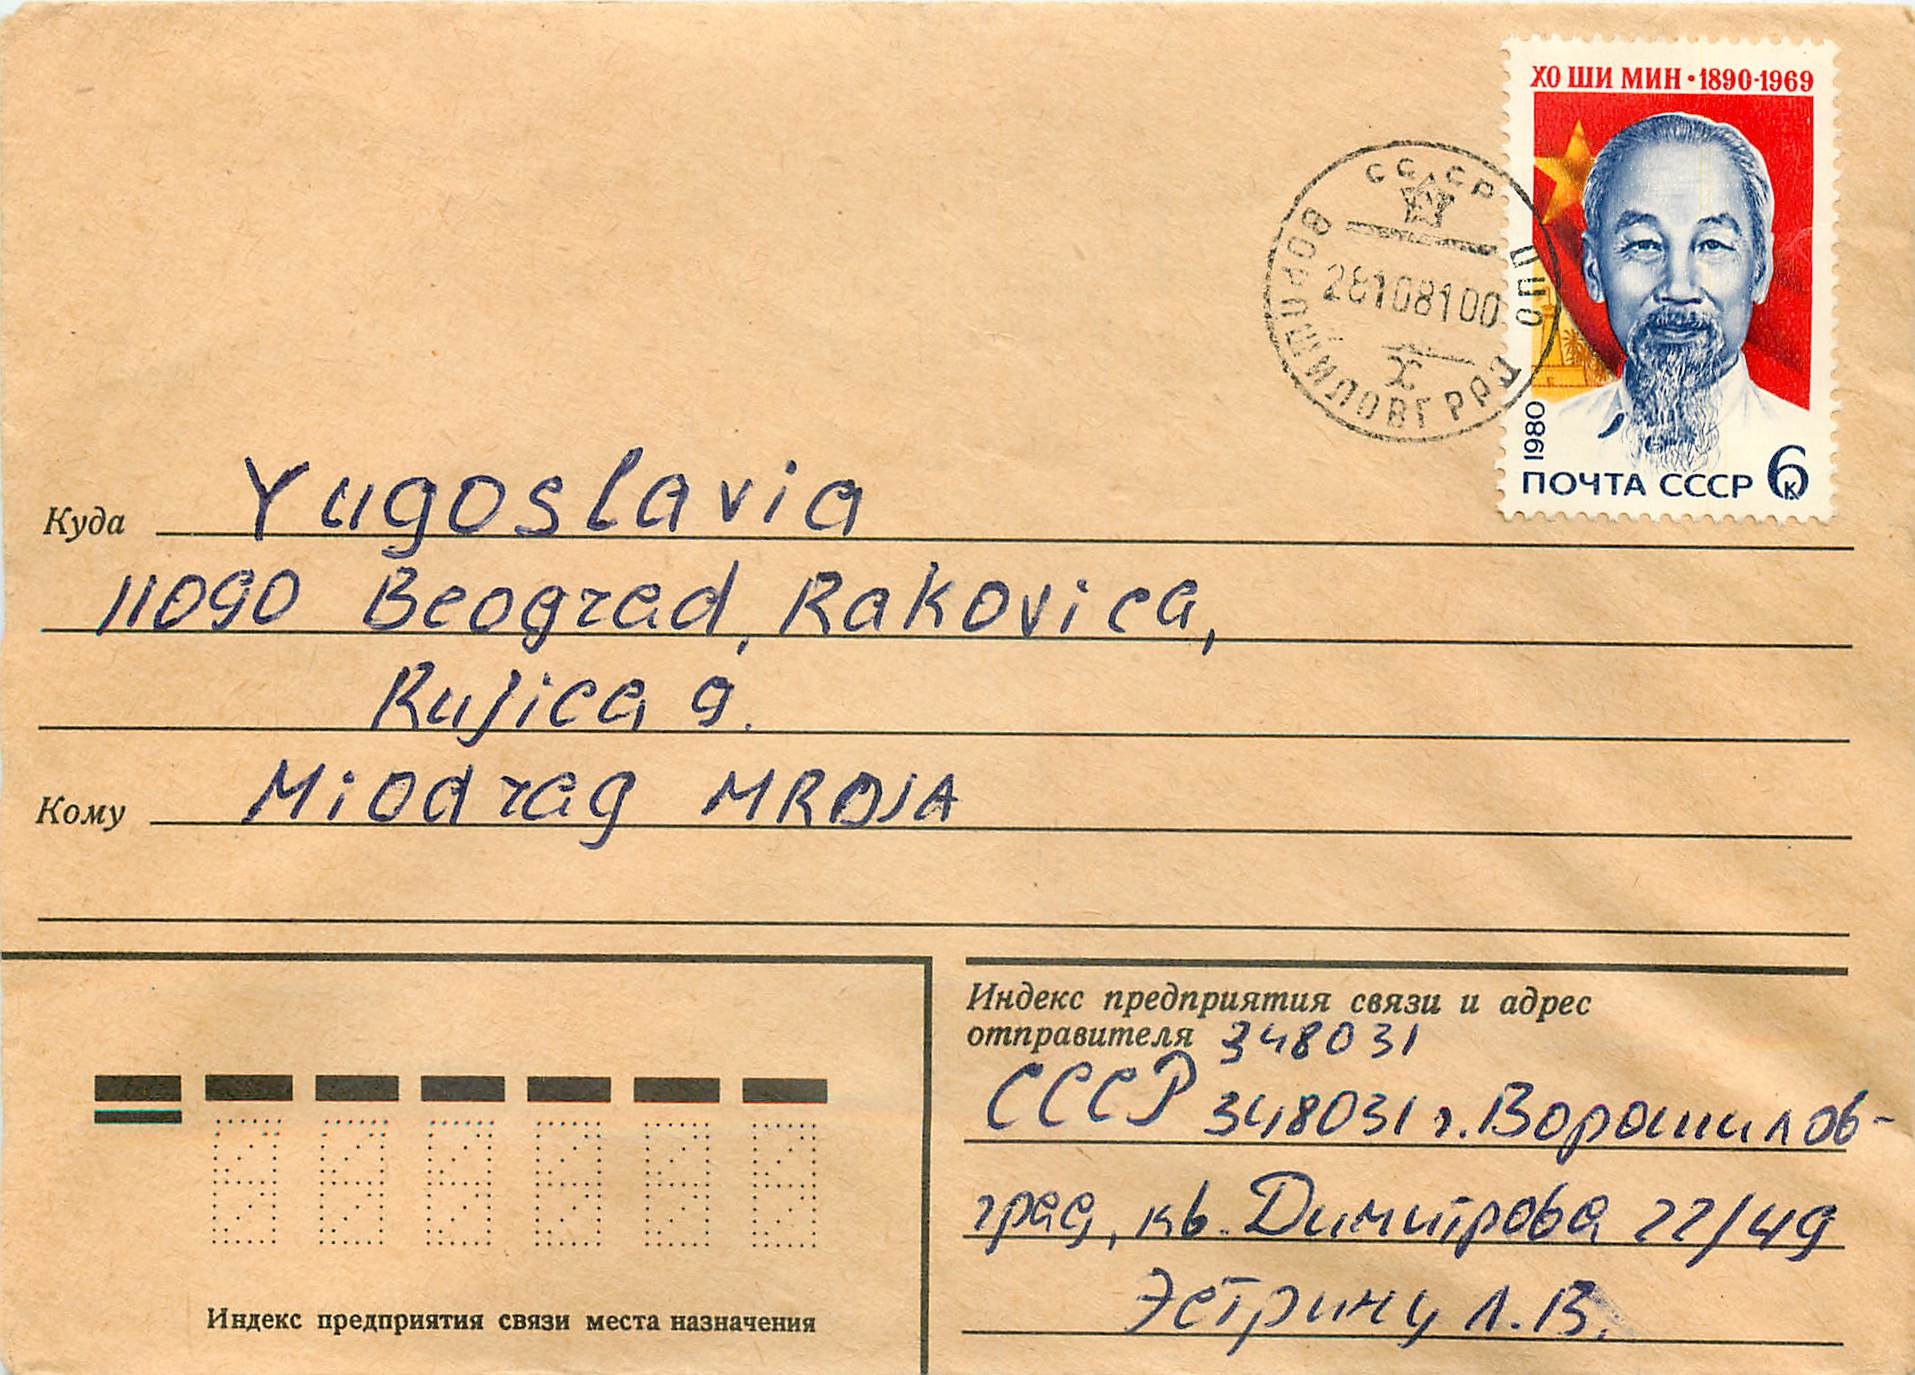 ХО ШИ МИН • 1890-1969
СССР
ВОРОШИЛОВГРАД ППО
28108100
1980
ПОЧТА СССР 6к
Куда Yugoslavia
11090 Beograd, Rakovica,
Rujica 9.
Кому Miodrag MRDJA
Индекс предприятия связи и адрес
отправителя 348031
СССР 348031 г. Ворошилов-
град, кв. Димитрова 22/49
Эстрину Л.В.
Индекс предприятия связи места назначения